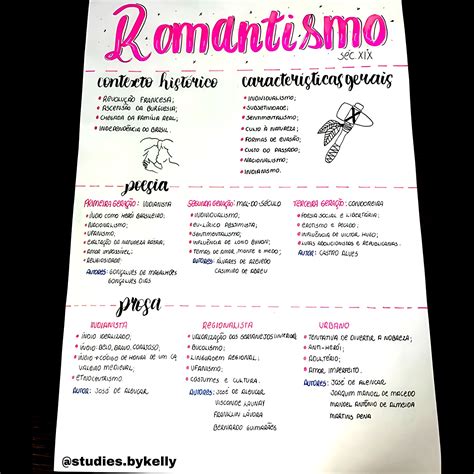 Romantismo
séc. XIX
contexto histórico
• REVOLUÇÃO FRANCESA;
• ASCENSÃO DA BURGUESIA;
• CHEGADA DA FAMÍLIA REAL;
• INDEPENDÊNCIA DO BRASIL.
características gerais
• INDIVIDUALISMO;
• SUBJETIVIDADE;
• SENTIMENTALISMO;
• CULTO À NATUREZA;
• FORMAS DE EVASÃO;
• CULTO DO PASSADO;
• NACIONALISMO;
• INDIANISMO.
poesia
PRIMEIRA GERAÇÃO: INDIANISTA
• ÍNDIO COMO HERÓI BRASILEIRO;
• NACIONALISMO;
• UFANISMO;
• EXALTAÇÃO DA NATUREZA PÁTRIA;
• AMOR IMPOSSÍVEL;
• RELIGIOSIDADE.
AUTORES: GONÇALVES DE MAGALHÃES
GONÇALVES DIAS
SEGUNDA GERAÇÃO: MAL-DO-SÉCULO
• INDIVIDUALISMO;
• EU-LÍRICO PESSIMISTA;
• SENTIMENTALISMO;
• INFLUÊNCIA DE LORD BYRON;
• TEMAS DE AMOR, MORTE E MEDO;
AUTORES: ÁLVARES DE AZEVEDO
CASIMIRO DE ABREU
TERCEIRA GERAÇÃO: CONDOREIRA
• POESIA SOCIAL E LIBERTÁRIA;
• EROTISMO E PECADO;
• INFLUÊNCIA DE VICTOR HUGO;
• LUTAS ABOLICIONISTAS E REPUBLICANAS.
AUTOR: CASTRO ALVES
prosa
INDIANISTA
• ÍNDIO IDEALIZADO;
• ÍNDIO: BELO, BRAVO, CORAJOSO;
• ÍNDIO = CÓDIGO DE HONRA DE UM CA
VALEIRO MEDIEVAL;
• ETNOCENTRISMO.
AUTOR: JOSÉ DE ALENCAR
REGIONALISTA
• VALORIZAÇÃO DOS SERTANEJOS/INTERIOR
• BUCOLISMO;
• LINGUAGEM REGIONAL;
• UFANISMO;
• COSTUMES E CULTURA.
AUTORES: JOSÉ DE ALENCAR
VISCONDE TAUNAY
FRANKLIN TÁVORA
BERNARDO GUIMARÃES
URBANO
• TENTATIVA DE DIVERTIR A NOBREZA;
• ANTI-HERÓI;
• ADULTÉRIO;
• AMOR IMPERFEITO.
AUTORES: JOSÉ DE ALENCAR
JOAQUIM MANUEL DE MACEDO
MANUEL ANTÔNIO DE ALMEIDA
MARTINS PENA
@studies.bykelly